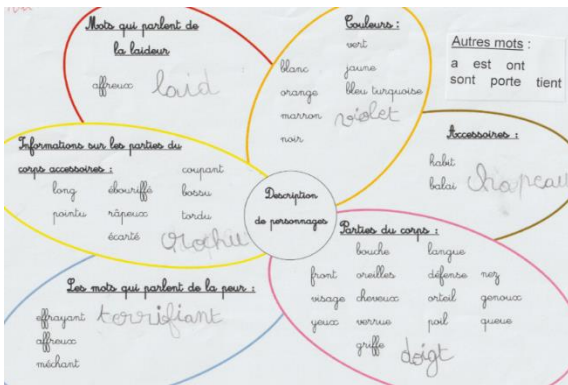 Mots qui parlent de
la laideur
affreux laid
Couleurs :
vert
blanc jaune
orange bleu turquoise
marron violet
noir
Autres mots :
a est ont
sont porte tient
Informations sur les parties du
corps accessoires : coupant
long ébouriffé bossu
pointu râpeux tordu
écarté crochu
Description
de personnages
Accessoires :
habit
balai chapeau
Les mots qui parlent de la peur :
effrayant terrifiant
affreux
méchant
Parties du corps :
bouche langue
front oreilles défense nez
visage cheveux orteil genoux
yeux verrue poil queue
griffe doigt